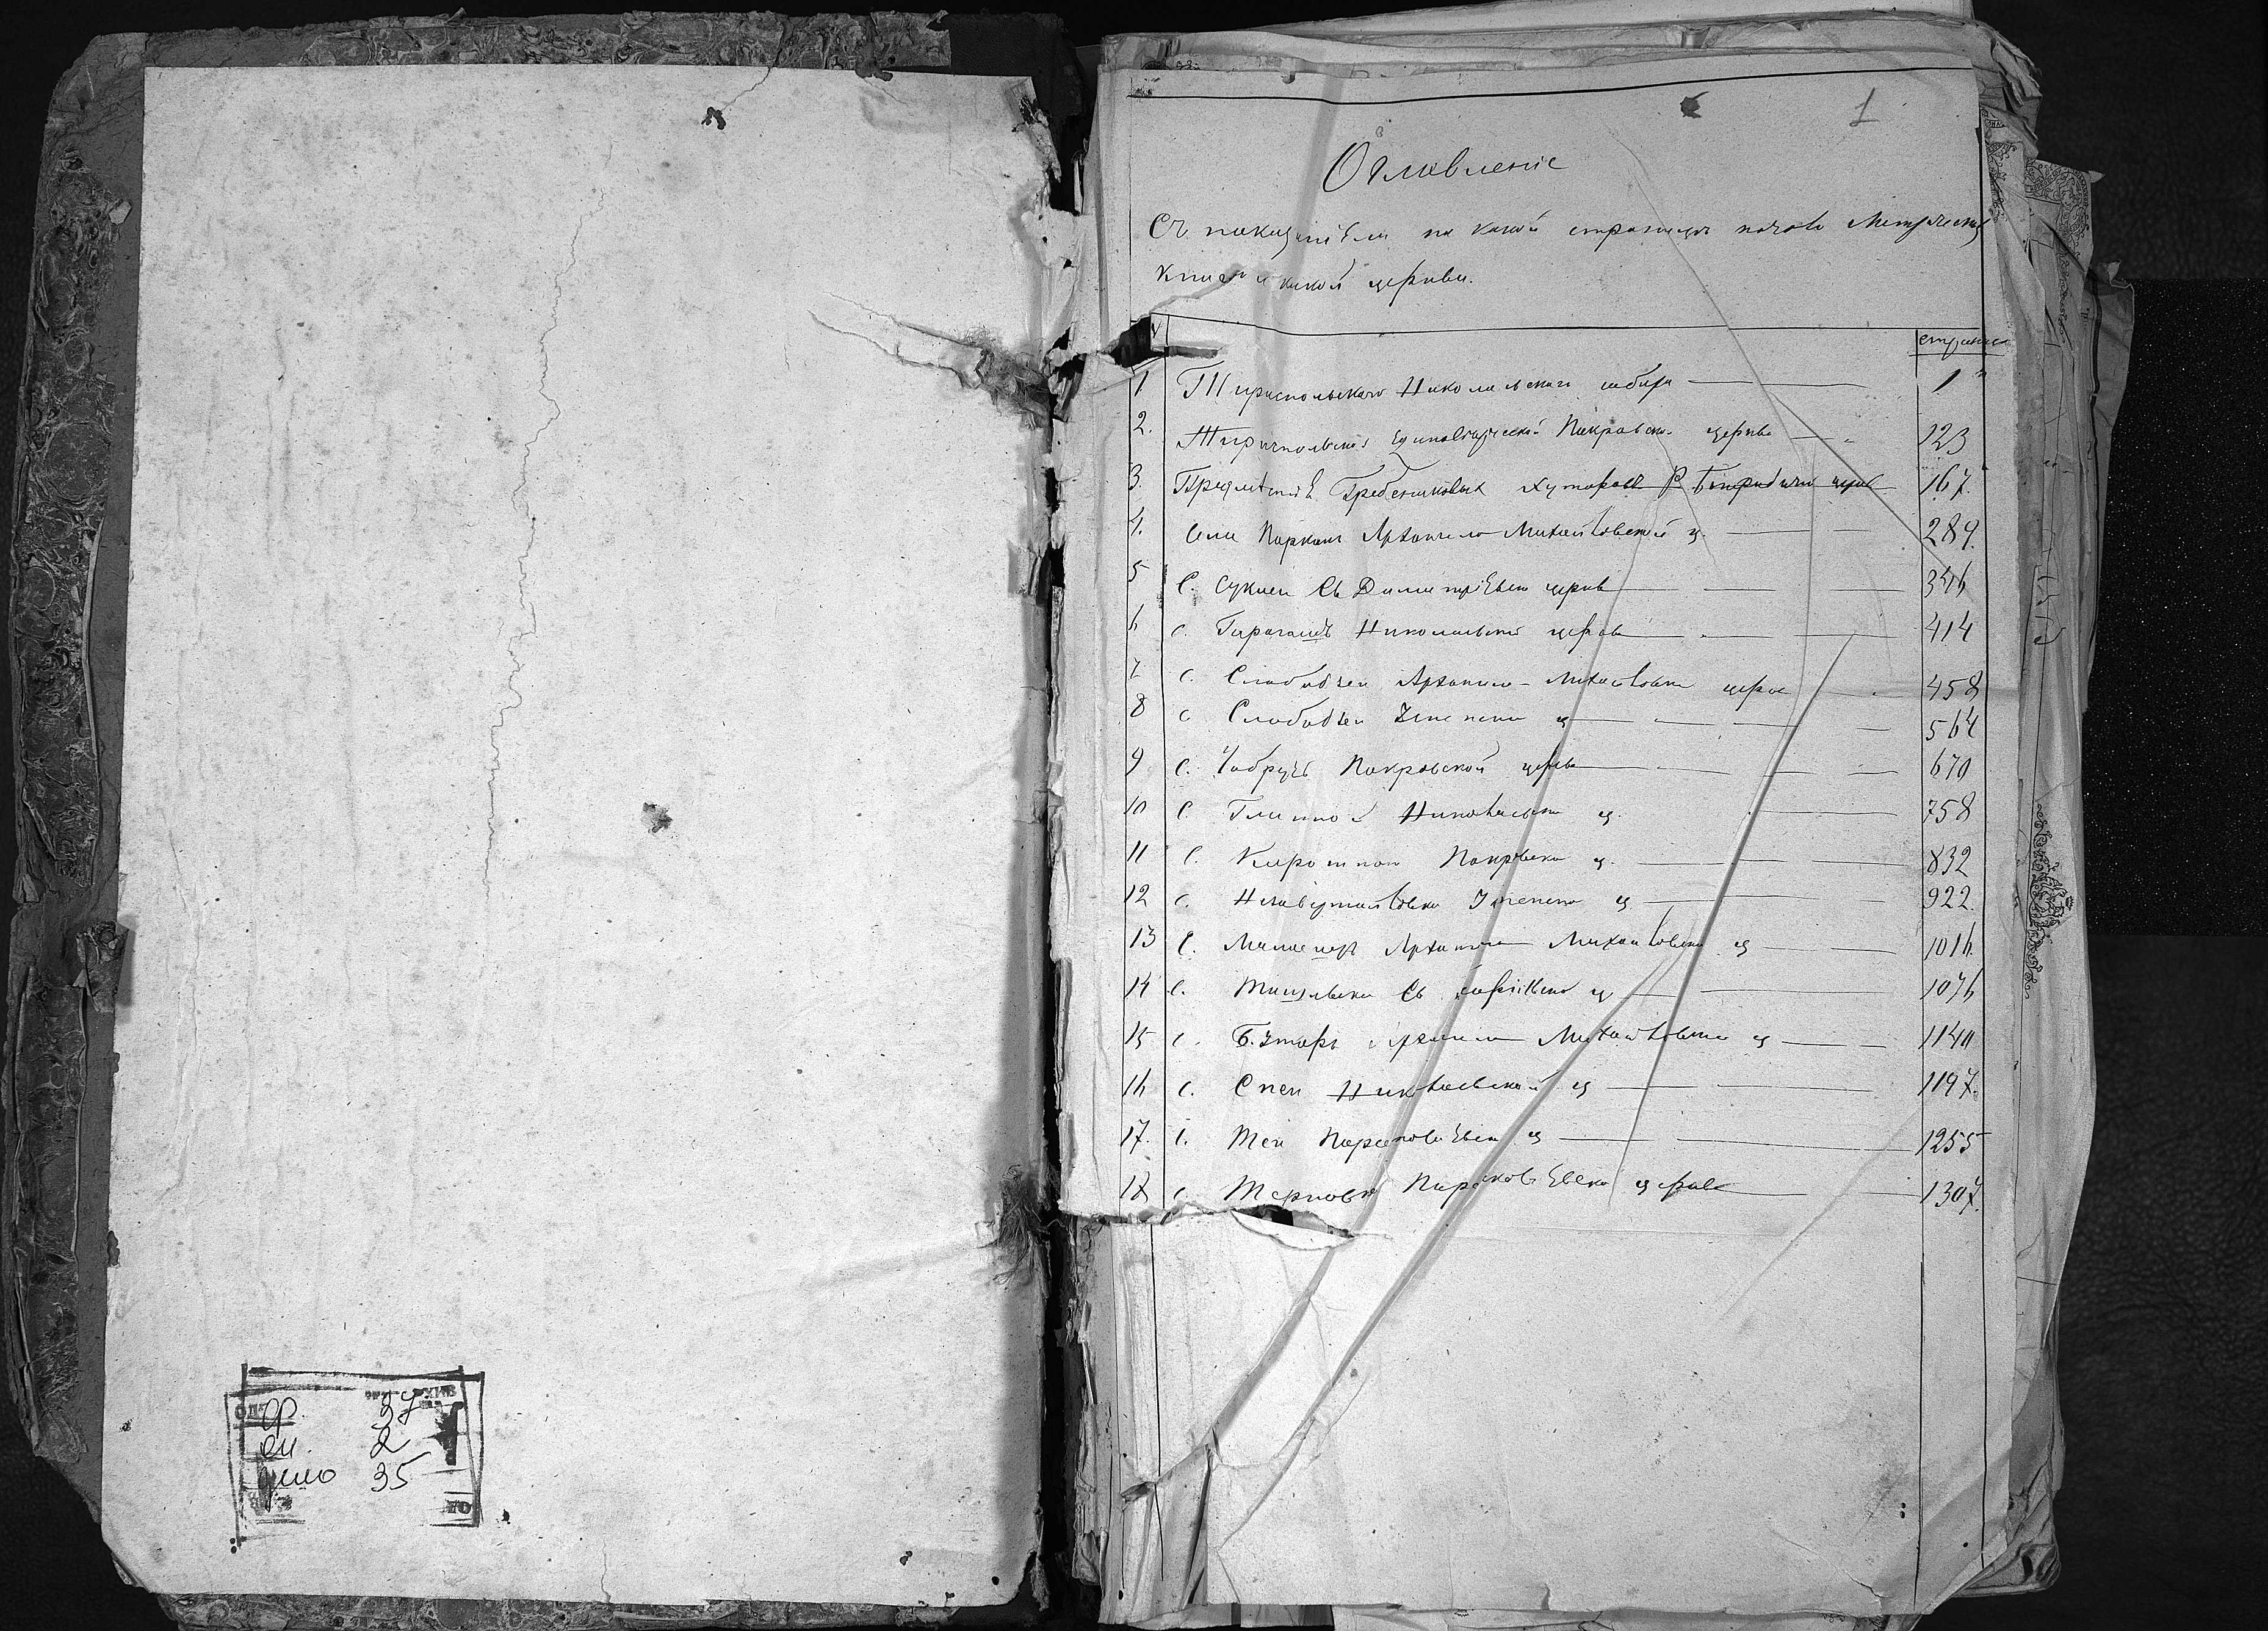 ф. 37
оп. 2
дело 35
1
Оглавленіе
Съ показаніем на какой страницѣ начало Метрическ
книги какой церкви.
страниц
1 Тираспольскаго Николаевскаго собора 1
2. Тираспольской Единоверческой Покровско церкви 123
3. Гребениковыхъ хуторовъ Р Б церк 167
4. Села Паркан Архангело Михайловской ц. 289.
5 С. Суклеи Св Димитріевск церкв 346
6 С. Карагашъ Николаевской церкв 414
7 С. Слободзеи Архангело-Михайловск церкв 458
8 С Слободзеи Успенск ц 564
9 С. Чобручъ Покровской церкв 670
10 С. Глинной Николаевск ц. 758
11 С. Коротной Покровск ц. 832
12 С. Незавертайловки Успенск ц. 922.
13 С. Малаештъ Архангел Михайловск ц 1016.
14 С. Ташлыка Св ц 1076
15 С. Бутор Архангел Михайловск ц 1140
16 С. Спеи Николаевской ц 1197.
17. С. Теи Параскевіевск ц 1255
18 С. Терновк Параскевіевск церкв 1307.